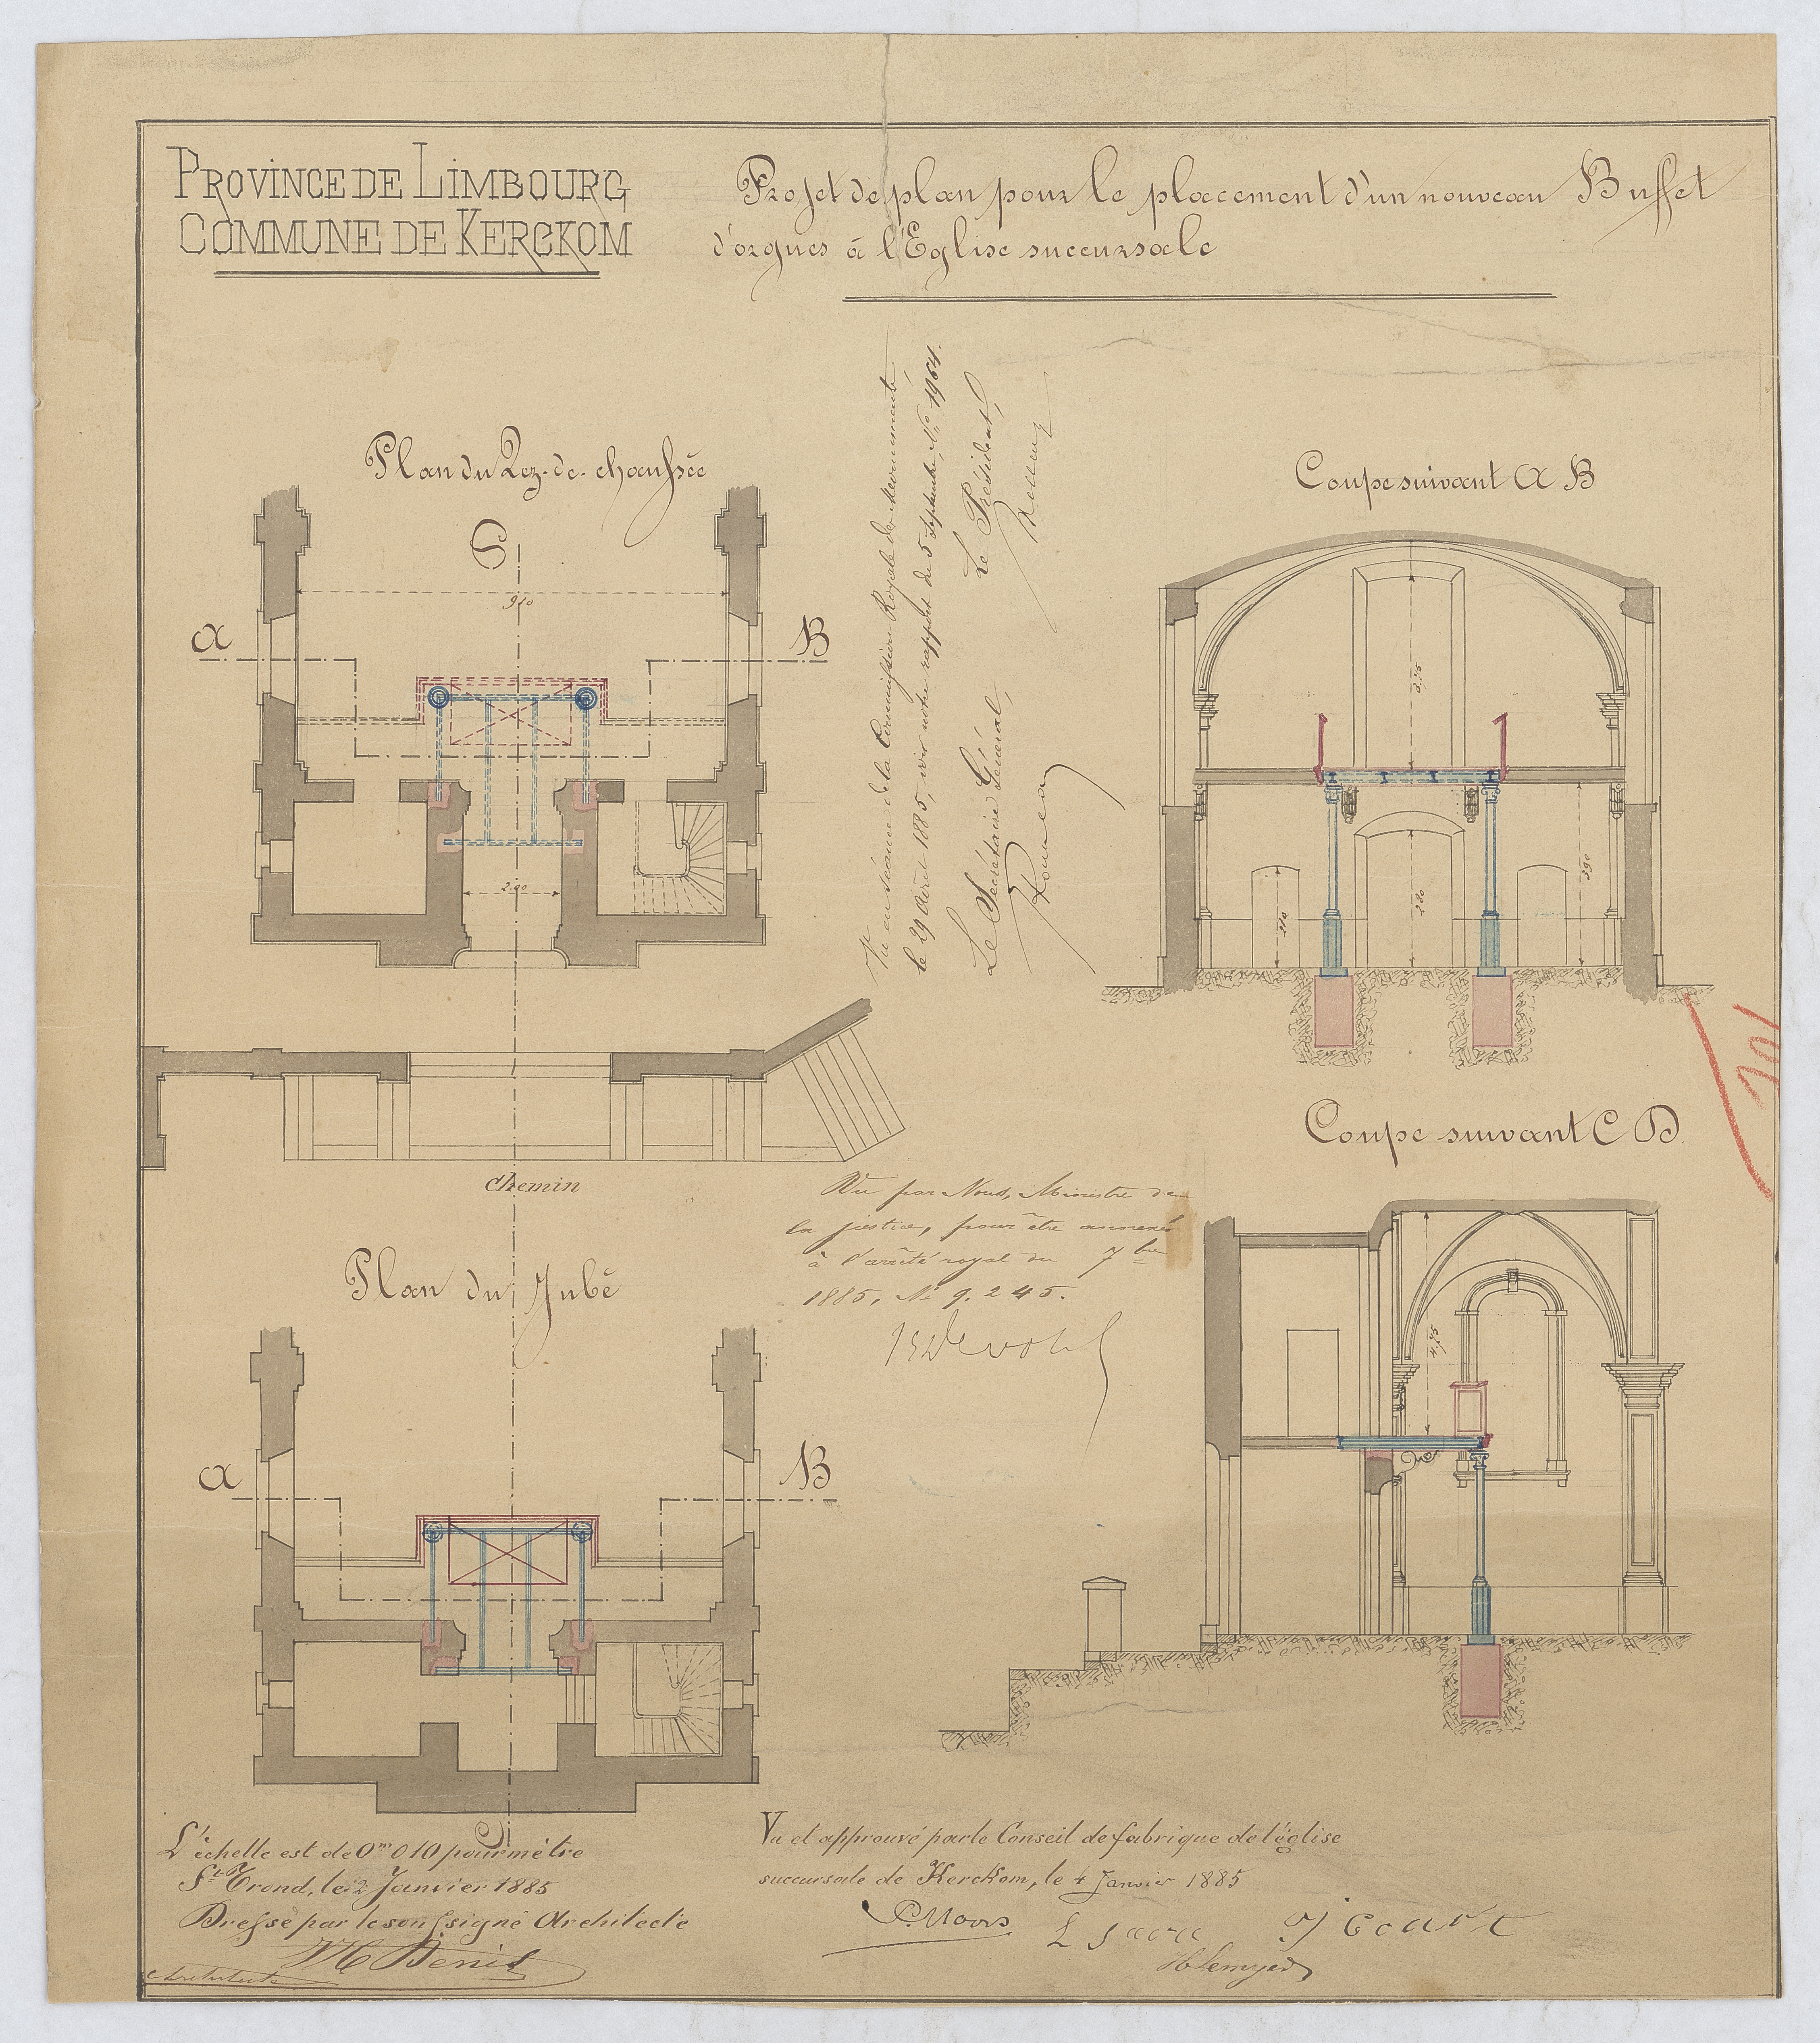 PROVINCE DE LIMBOURG
COMMUNE DE KERCKOM
Projet de plan pour le placement d'un nouveau Buffet
d'orgues à l'Eglise succursale
Plan du Rez-de-chaussée
C
910
A
B
2.90
Chemin
Vu en séance de la Commission Royale des Monuments
le 29 Avril 1885, voir notre rapport du 5 septembre, No 1964.
Le Secrétaire Général,
Le Président,
Coupe suivant A B
210
280
390
Coupe suivant C D
4,75
Vu par Nous, Ministre de
la justice, pour être annexé
à l'arrêté royal du 7bre
1885, No 9.245.
Plan du Jubé
A
B
L'échelle est de 0m 010 pour mètre
St Trond, le 2 Janvier 1885
Dressé par le soussigné Architecte
Denis
Architecte
Vu et approuvé par le Conseil de fabrique de l'église
succursale de Kerckom, le 4 Janvier 1885